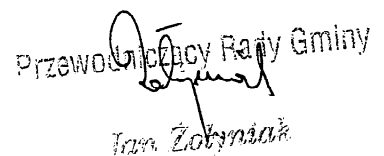 Przewodniczący Rady Gminy
Jan Żołyniak